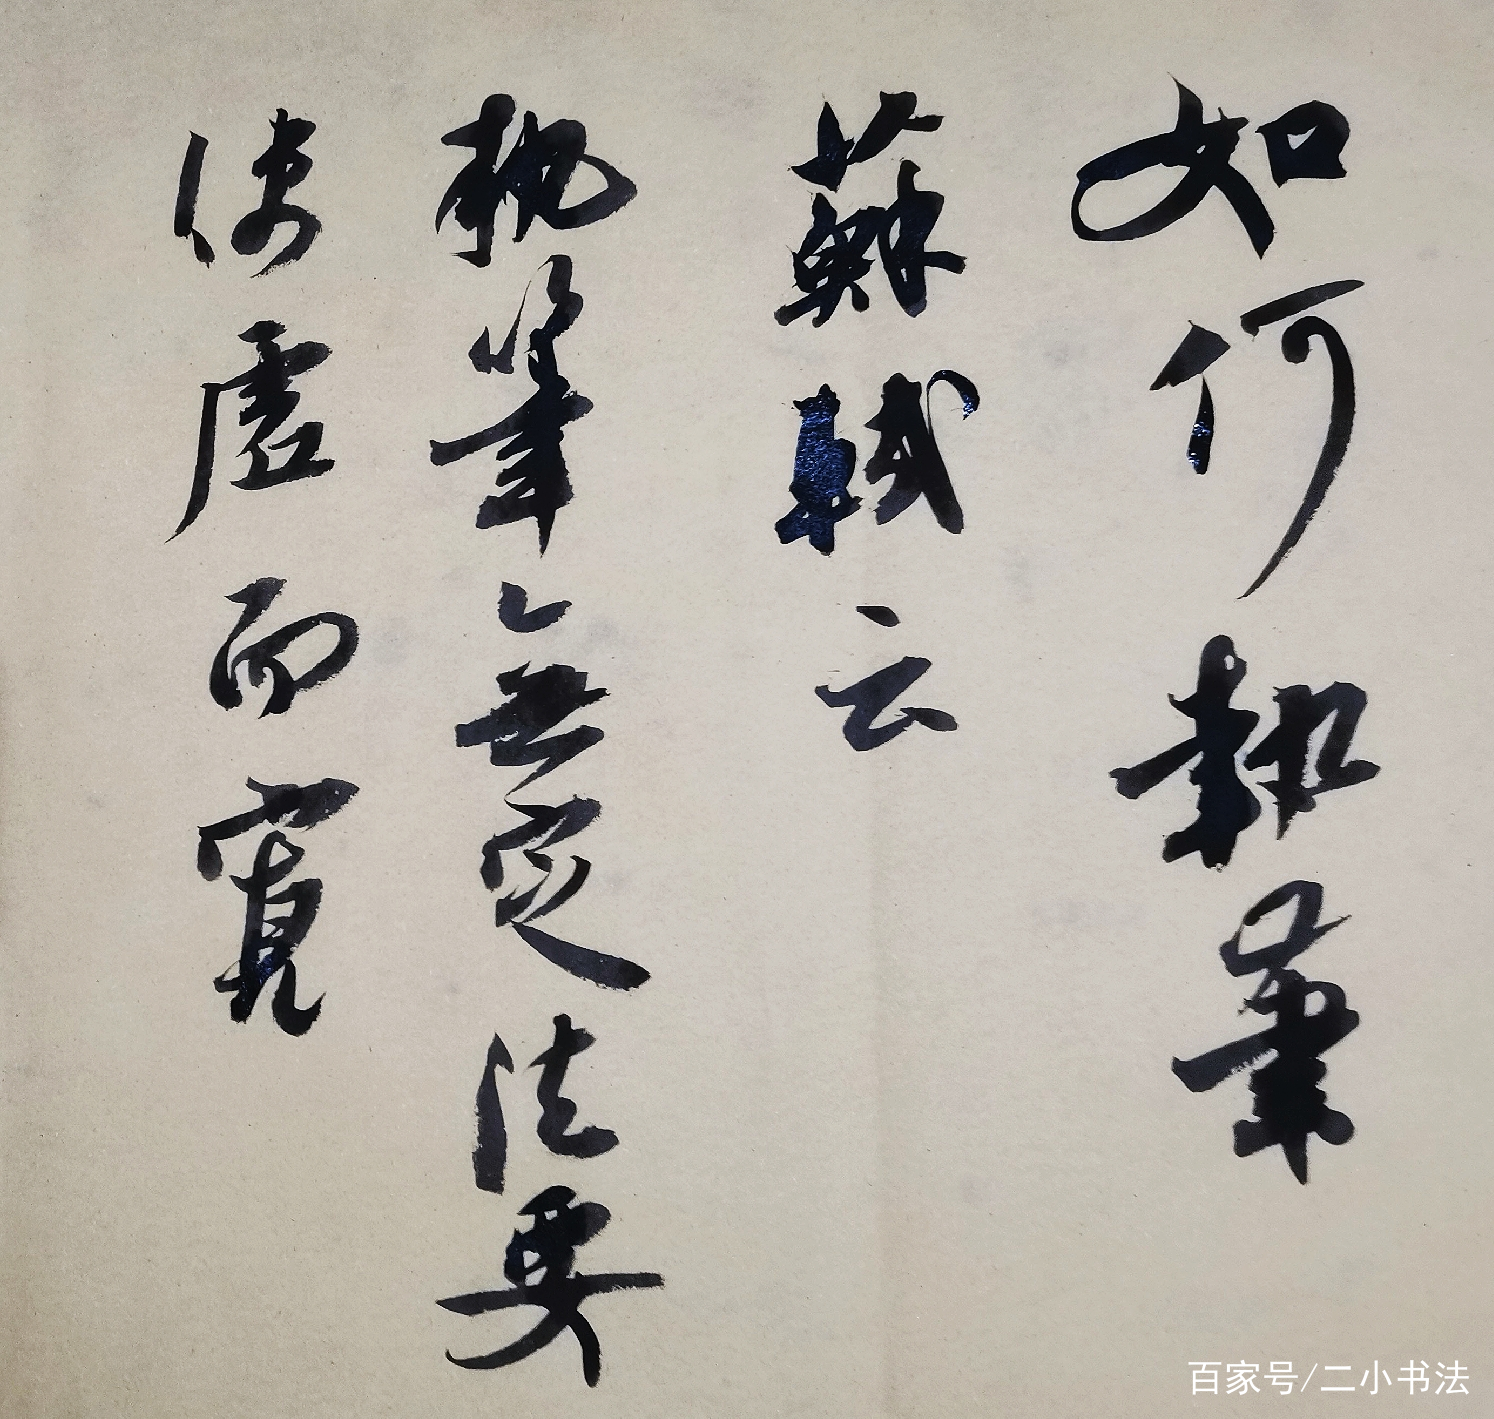 如何執筆
蘇軾云
執筆無定法要
使虛而寬
百家号/二小书法